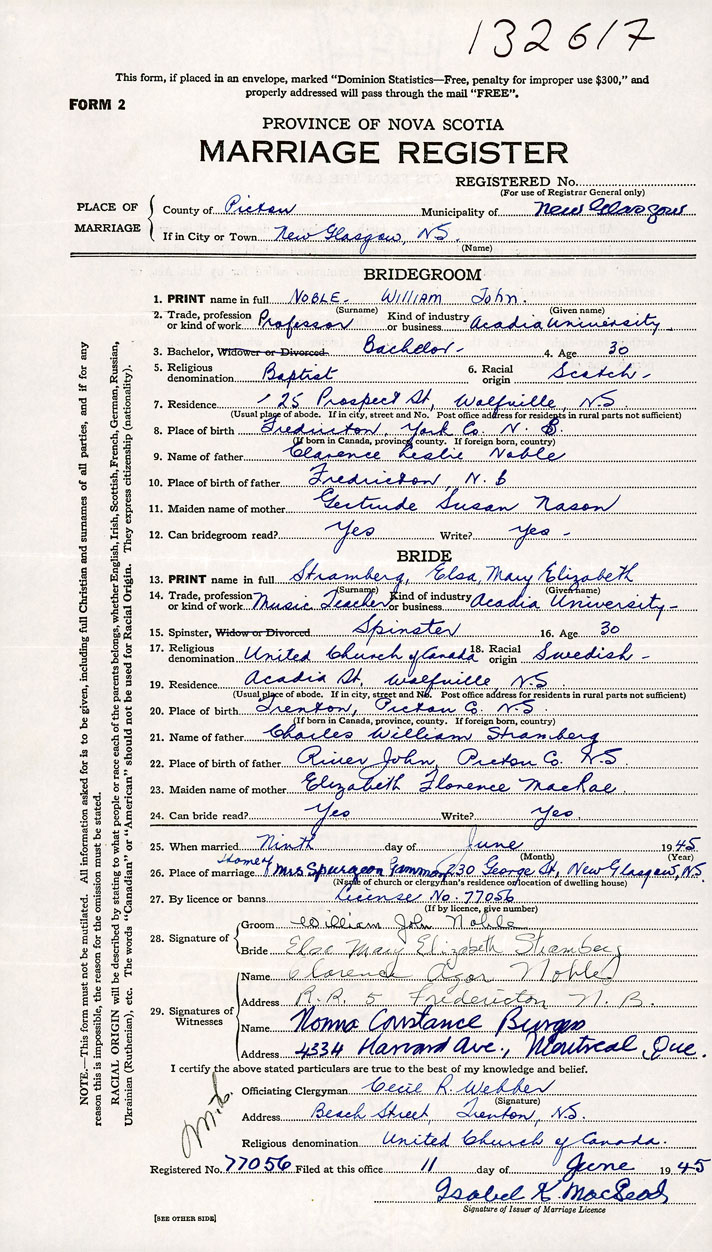 132617
This form, if placed in an envelope, marked "Dominion Statistics—Free, penalty for improper use $300," and
properly addressed will pass through the mail "FREE".
FORM 2
PROVINCE OF NOVA SCOTIA
MARRIAGE REGISTER
REGISTERED No.
(For use of Registrar General only)
PLACE OF MARRIAGE
County of Pictou Municipality of New Glasgow
If in City or Town New Glasgow, N.S.
(Name)
BRIDEGROOM
1. PRINT name in full NOBLE - William John.
(Surname) (Given name)
2. Trade, profession or kind of work Professor Kind of industry or business Acadia University
3. Bachelor, Widower or Divorced Bachelor - 4. Age 30
5. Religious denomination Baptist 6. Racial origin Scotch -
7. Residence 125 Prospect St, Wolfville, N.S.
(Usual place of abode. If in city, street and No. Post office address for residents in rural parts not sufficient)
8. Place of birth Fredricton, York Co. N. B.
(If born in Canada, province, county. If foreign born, country)
9. Name of father Clarence Leslie Noble
10. Place of birth of father Fredricton, N.B
11. Maiden name of mother Gertrude Susan Nason
12. Can bridegroom read? Yes Write? yes -
BRIDE
13. PRINT name in full Stramberg, Elsa, Mary Elizabeth
(Surname) (Given name)
14. Trade, profession or kind of work Music Teacher Kind of industry or business Acadia University -
15. Spinster, Widow or Divorced Spinster 16. Age 30
17. Religious denomination United Church of Canada 18. Racial origin Swedish -
19. Residence Acadia St. Wolfville, N.S.
(Usual place of abode. If in city, street and No. Post office address for residents in rural parts not sufficient)
20. Place of birth Trenton, Pictou C. N.S.
(If born in Canada, province, county. If foreign born, country)
21. Name of father Charles William Stramberg
22. Place of birth of father River John, Pictou Co. N.S
23. Maiden name of mother Elizabeth Florence MacRae.
24. Can bride read? Yes Write? Yes.
25. When married Ninth day of June 1945
(Month) (Year)
26. Place of marriage Home of Mrs Spurgeon Gammon, 230 George St, New Glasgow, N.S.
(Name of church or clergyman's residence or location of dwelling house)
27. By licence or banns License No. 77056
(If by licence, give number)
28. Signature of
Groom William John Noble
Bride Elsa Mary Elizabeth Stramberg
29. Signatures of Witnesses
Name Clarence Noble
Address R.R. 5 Fredericton N. B.
Name Norma Constance Burgess
Address 4334 Harvard Ave., Montreal, Que.
I certify the above stated particulars are true to the best of my knowledge and belief.
Officiating Clergyman Cecil R. Webber
(Signature)
Address Beach Street, Trenton, N.S.
Religious denomination United Church of Canada.
Registered No. 77056 Filed at this office 11 day of June 1945
Isabel K. MacLeod
Signature of Issuer of Marriage Licence
[SEE OTHER SIDE]
NOTE.—This form must not be mutilated. All information asked for is to be given, including full Christian and surnames of all parties, and if for any
reason this is impossible, the reason for the omission must be stated.
RACIAL ORIGIN will be described by stating to what people or race each of the parents belongs, whether English, Irish, Scottish, French, German, Russian,
Ukrainian (Ruthenian), etc. The words "Canadian" or "American" should not be used for Racial Origin. They express citizenship (nationality).